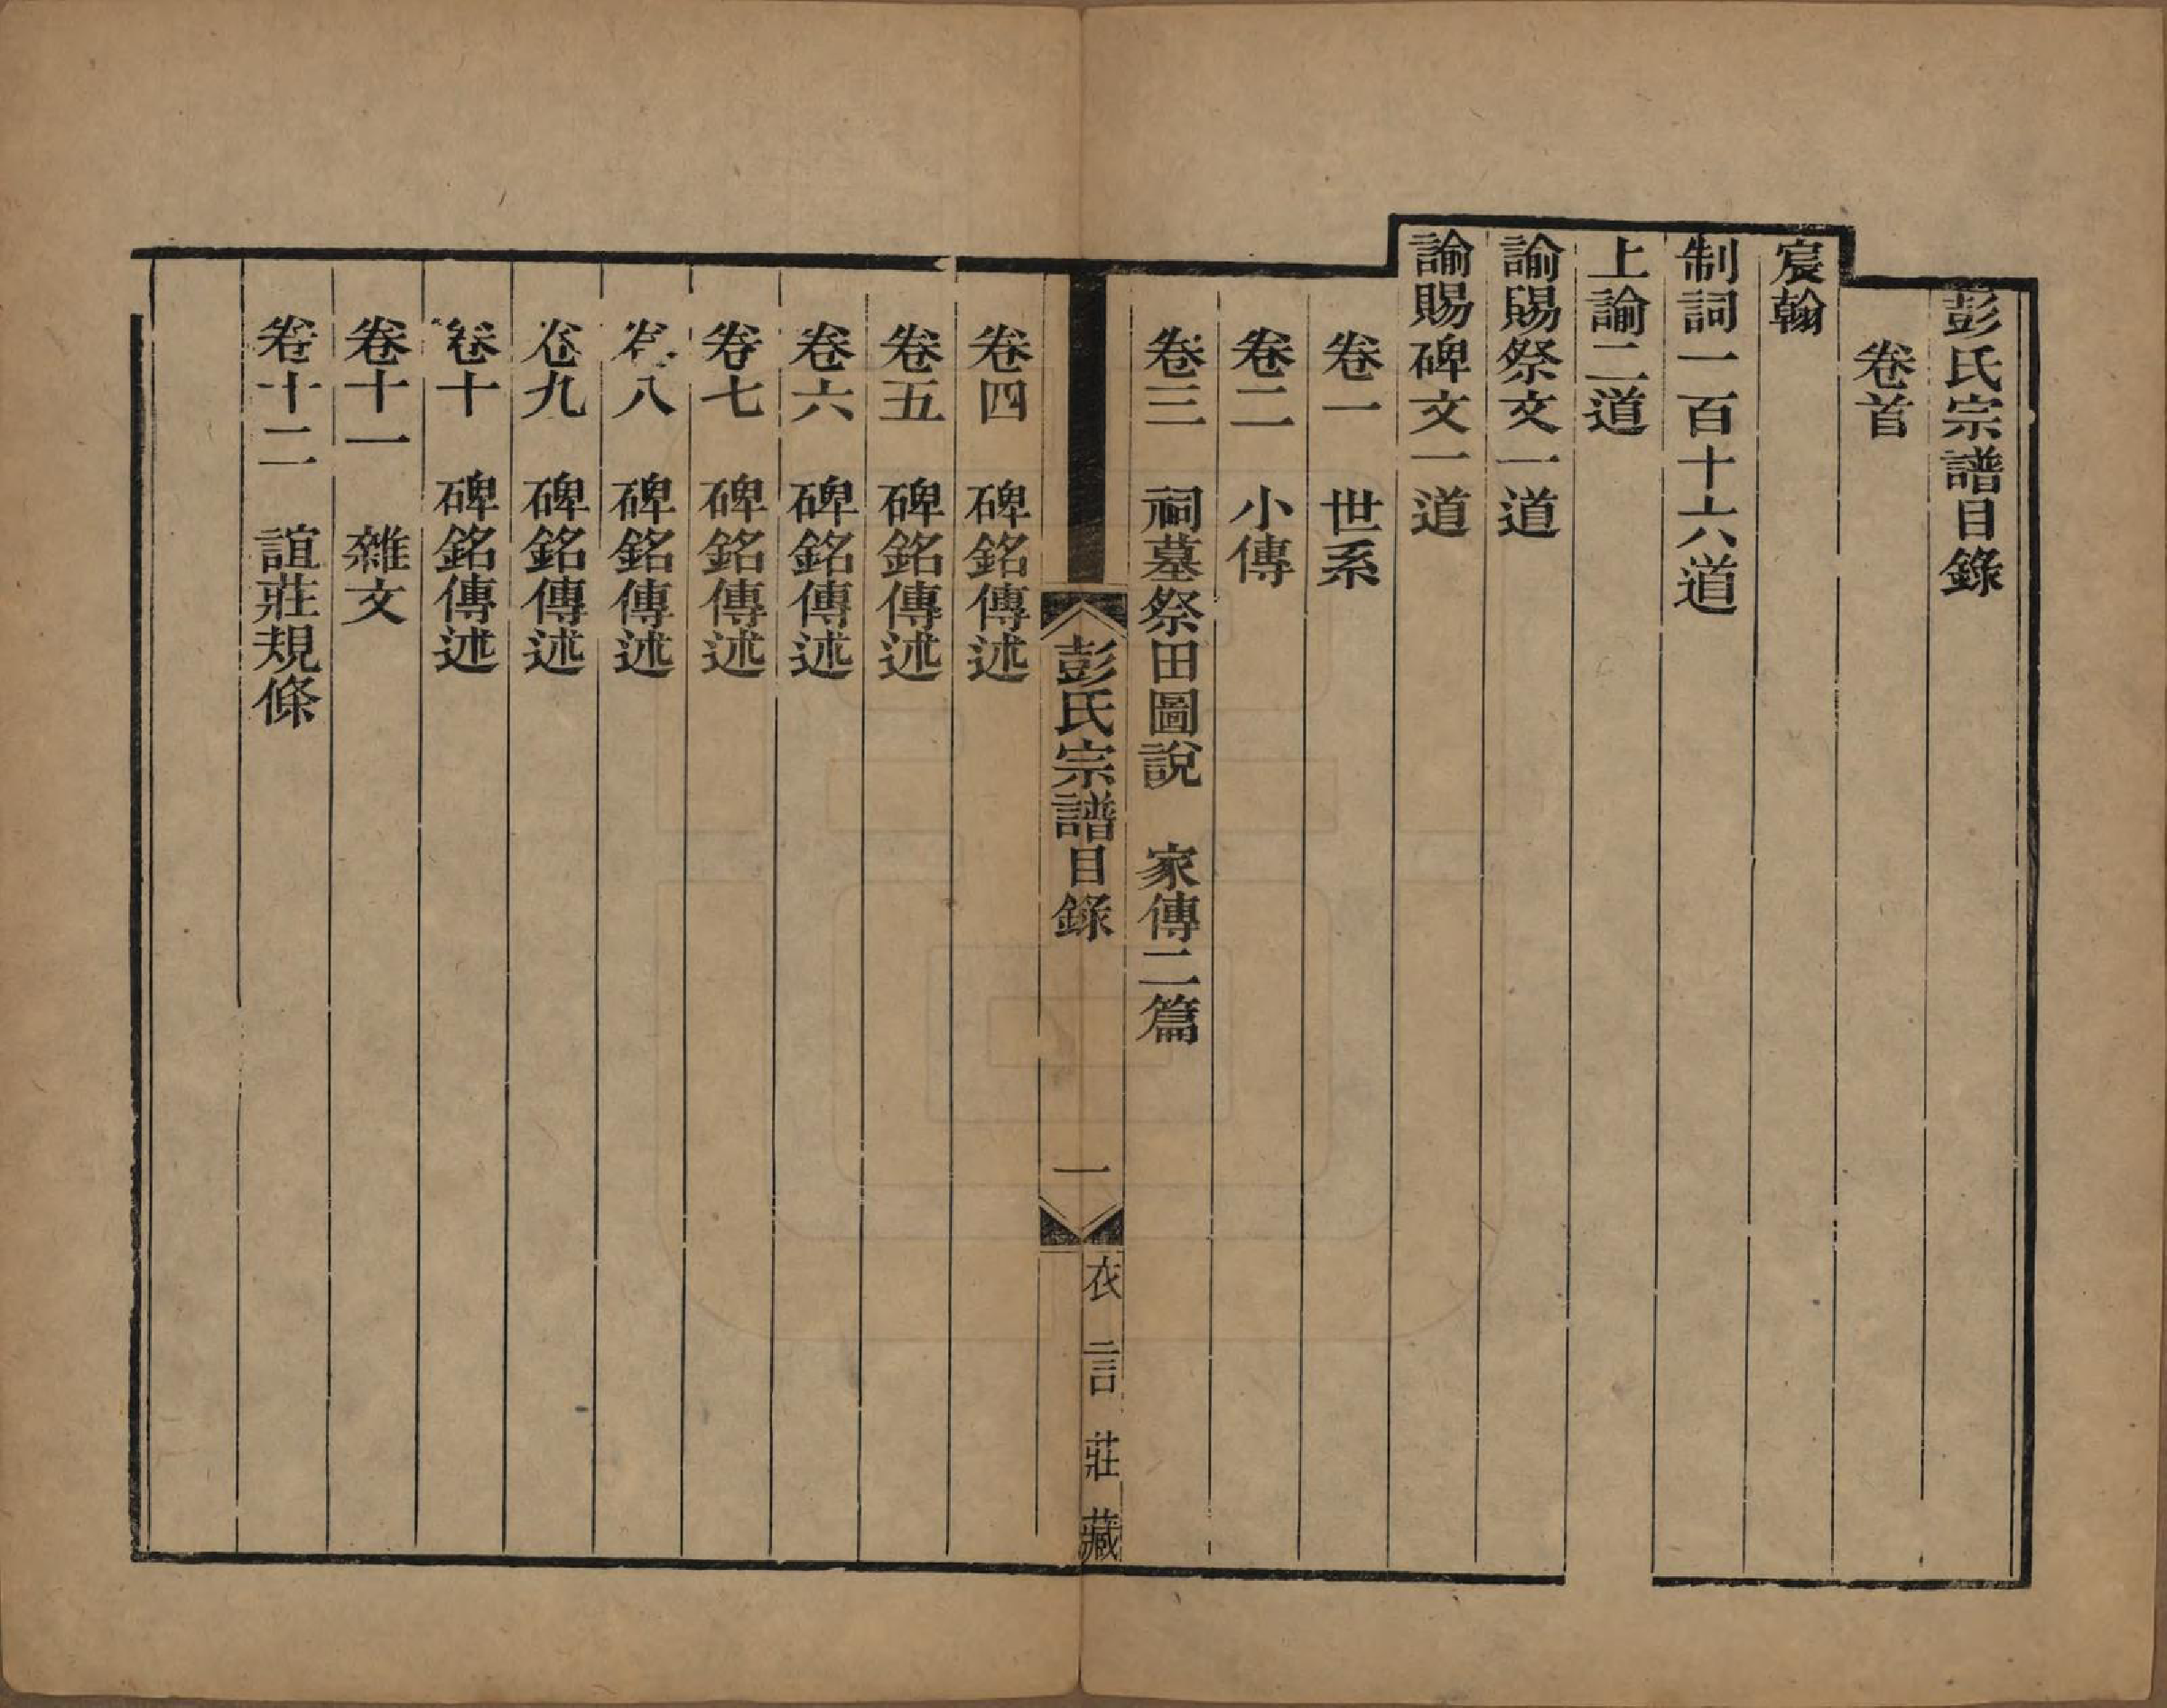 彭氏宗譜目錄
卷首
宸翰
制詞一百十六道
上諭二道
諭賜祭文一道
諭賜碑文一道
卷一　世系
卷二　小傳
卷三　祠墓祭田圖說　家傳二篇
彭氏宗譜目錄　一　衣言莊藏
卷四　碑銘傳述
卷五　碑銘傳述
卷六　碑銘傳述
卷七　碑銘傳述
卷八　碑銘傳述
卷九　碑銘傳述
卷十　碑銘傳述
卷十一　雜文
卷十二　誼莊規條